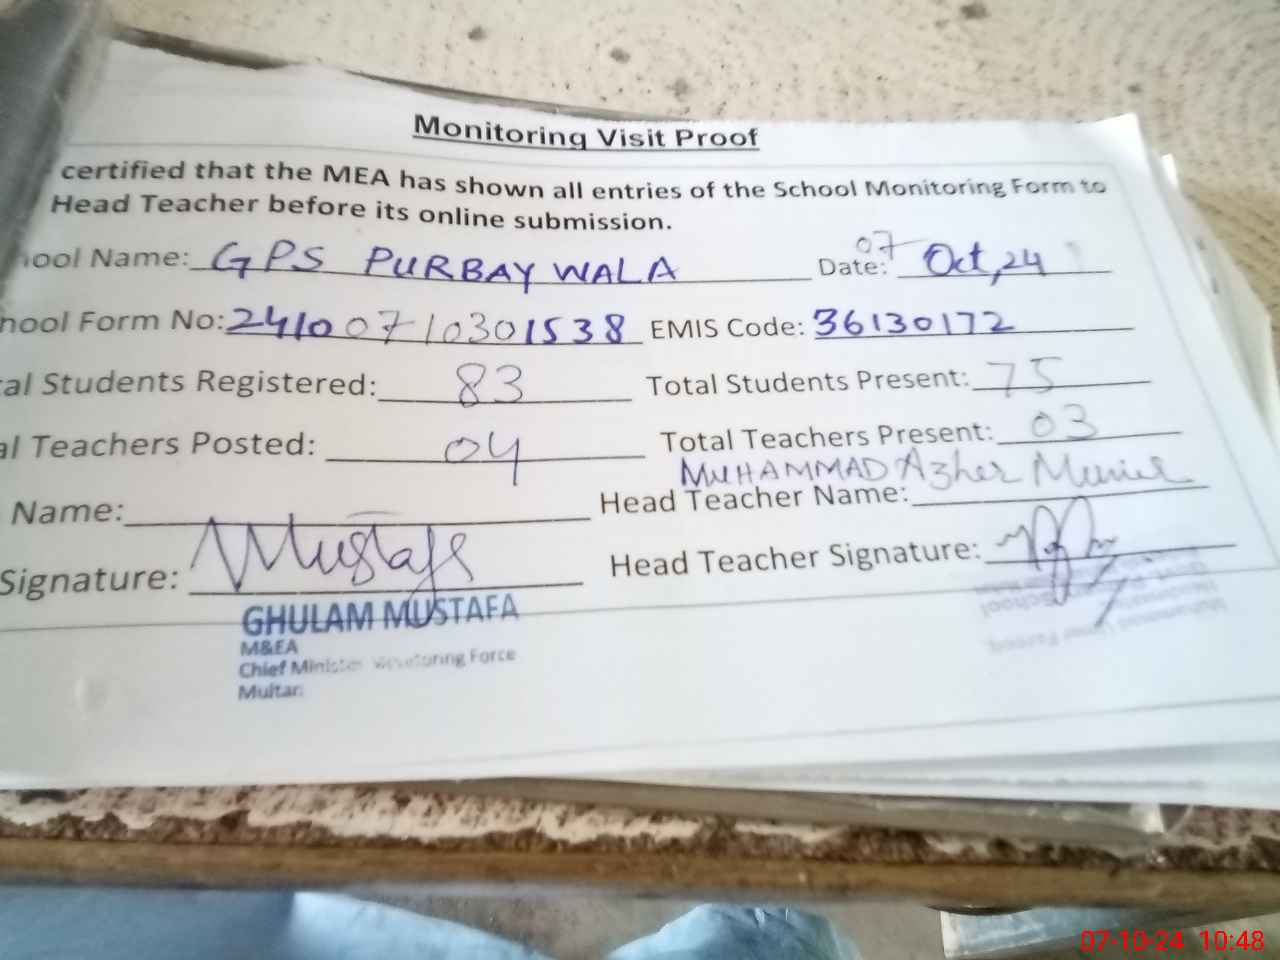 Monitoring Visit Proof
certified that the MEA has shown all entries of the School Monitoring Form to
Head Teacher before its online submission.
ool Name: GPS PURBAY WALA Date: 07 Oct, 24
hool Form No: 2410071030 1538 EMIS Code: 36130172
al Students Registered: 83 Total Students Present: 75
al Teachers Posted: 04 Total Teachers Present: 03
Name: Head Teacher Name: MUHAMMAD Azher Munir
Signature: Mustafa Head Teacher Signature:
GHULAM MUSTAFA
M&EA
Chief Minister Monitoring Force
Multan
07-10-24 10:48